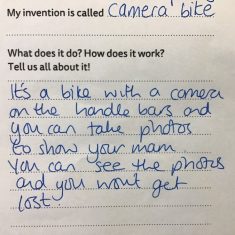 My invention is called camera bike
What does it do? How does it work?
Tell us all about it!
It's a bike with a camera
on the handle bars and
you can take photos
to show your mam.
You can see the photos
and you wont get
lost.